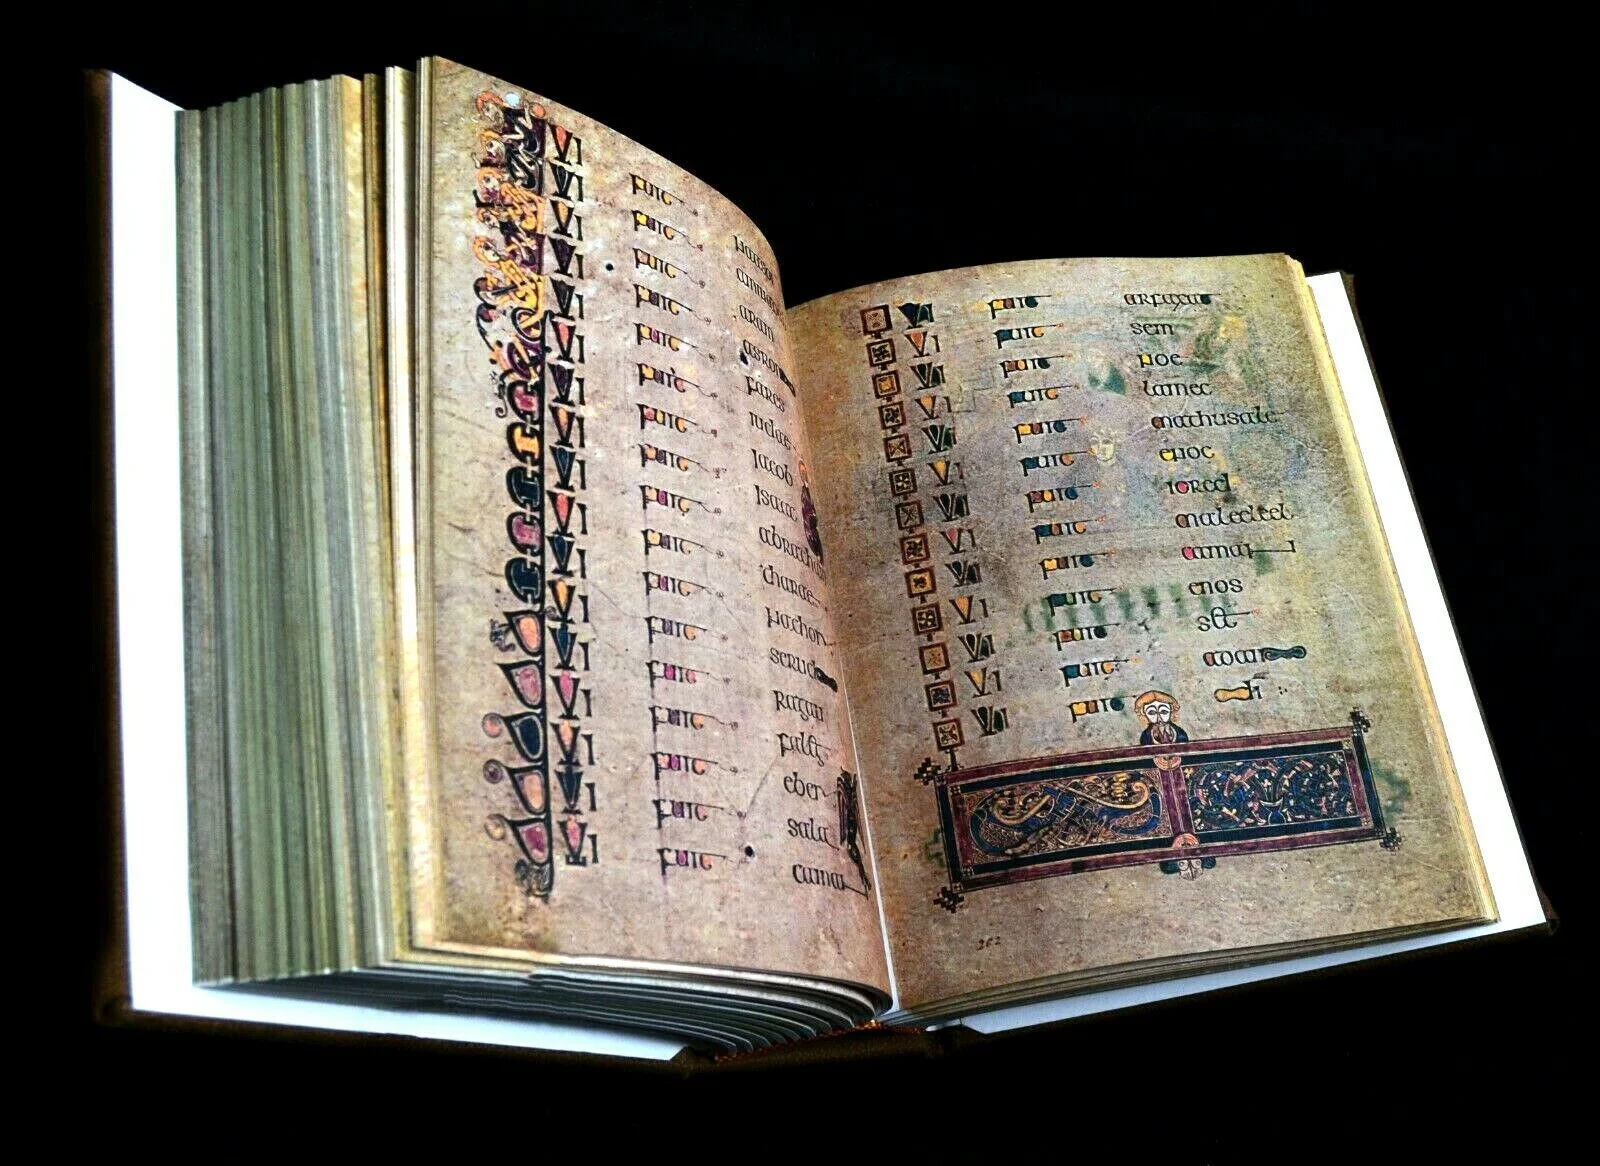 QUI fuit
QUI fuit
QUI fuit aram
QUI fuit asrom
QUI fuit fares
QUI fuit iudae
QUI fuit iacob
QUI fuit isaac
QUI fuit abracham
QUI fuit tharae
QUI fuit nachor
QUI fuit seruch
QUI fuit ragau
QUI fuit falec
QUI fuit eber
QUI fuit sala
QUI fuit cainan
QUI fuit arfaxad
QUI fuit sem
QUI fuit noe
QUI fuit lamec
QUI fuit mathusale
QUI fuit enoc
QUI fuit iared
QUI fuit maleleel
QUI fuit cainan
QUI fuit enos
QUI fuit seth
QUI fuit adam
QUI fuit di
202